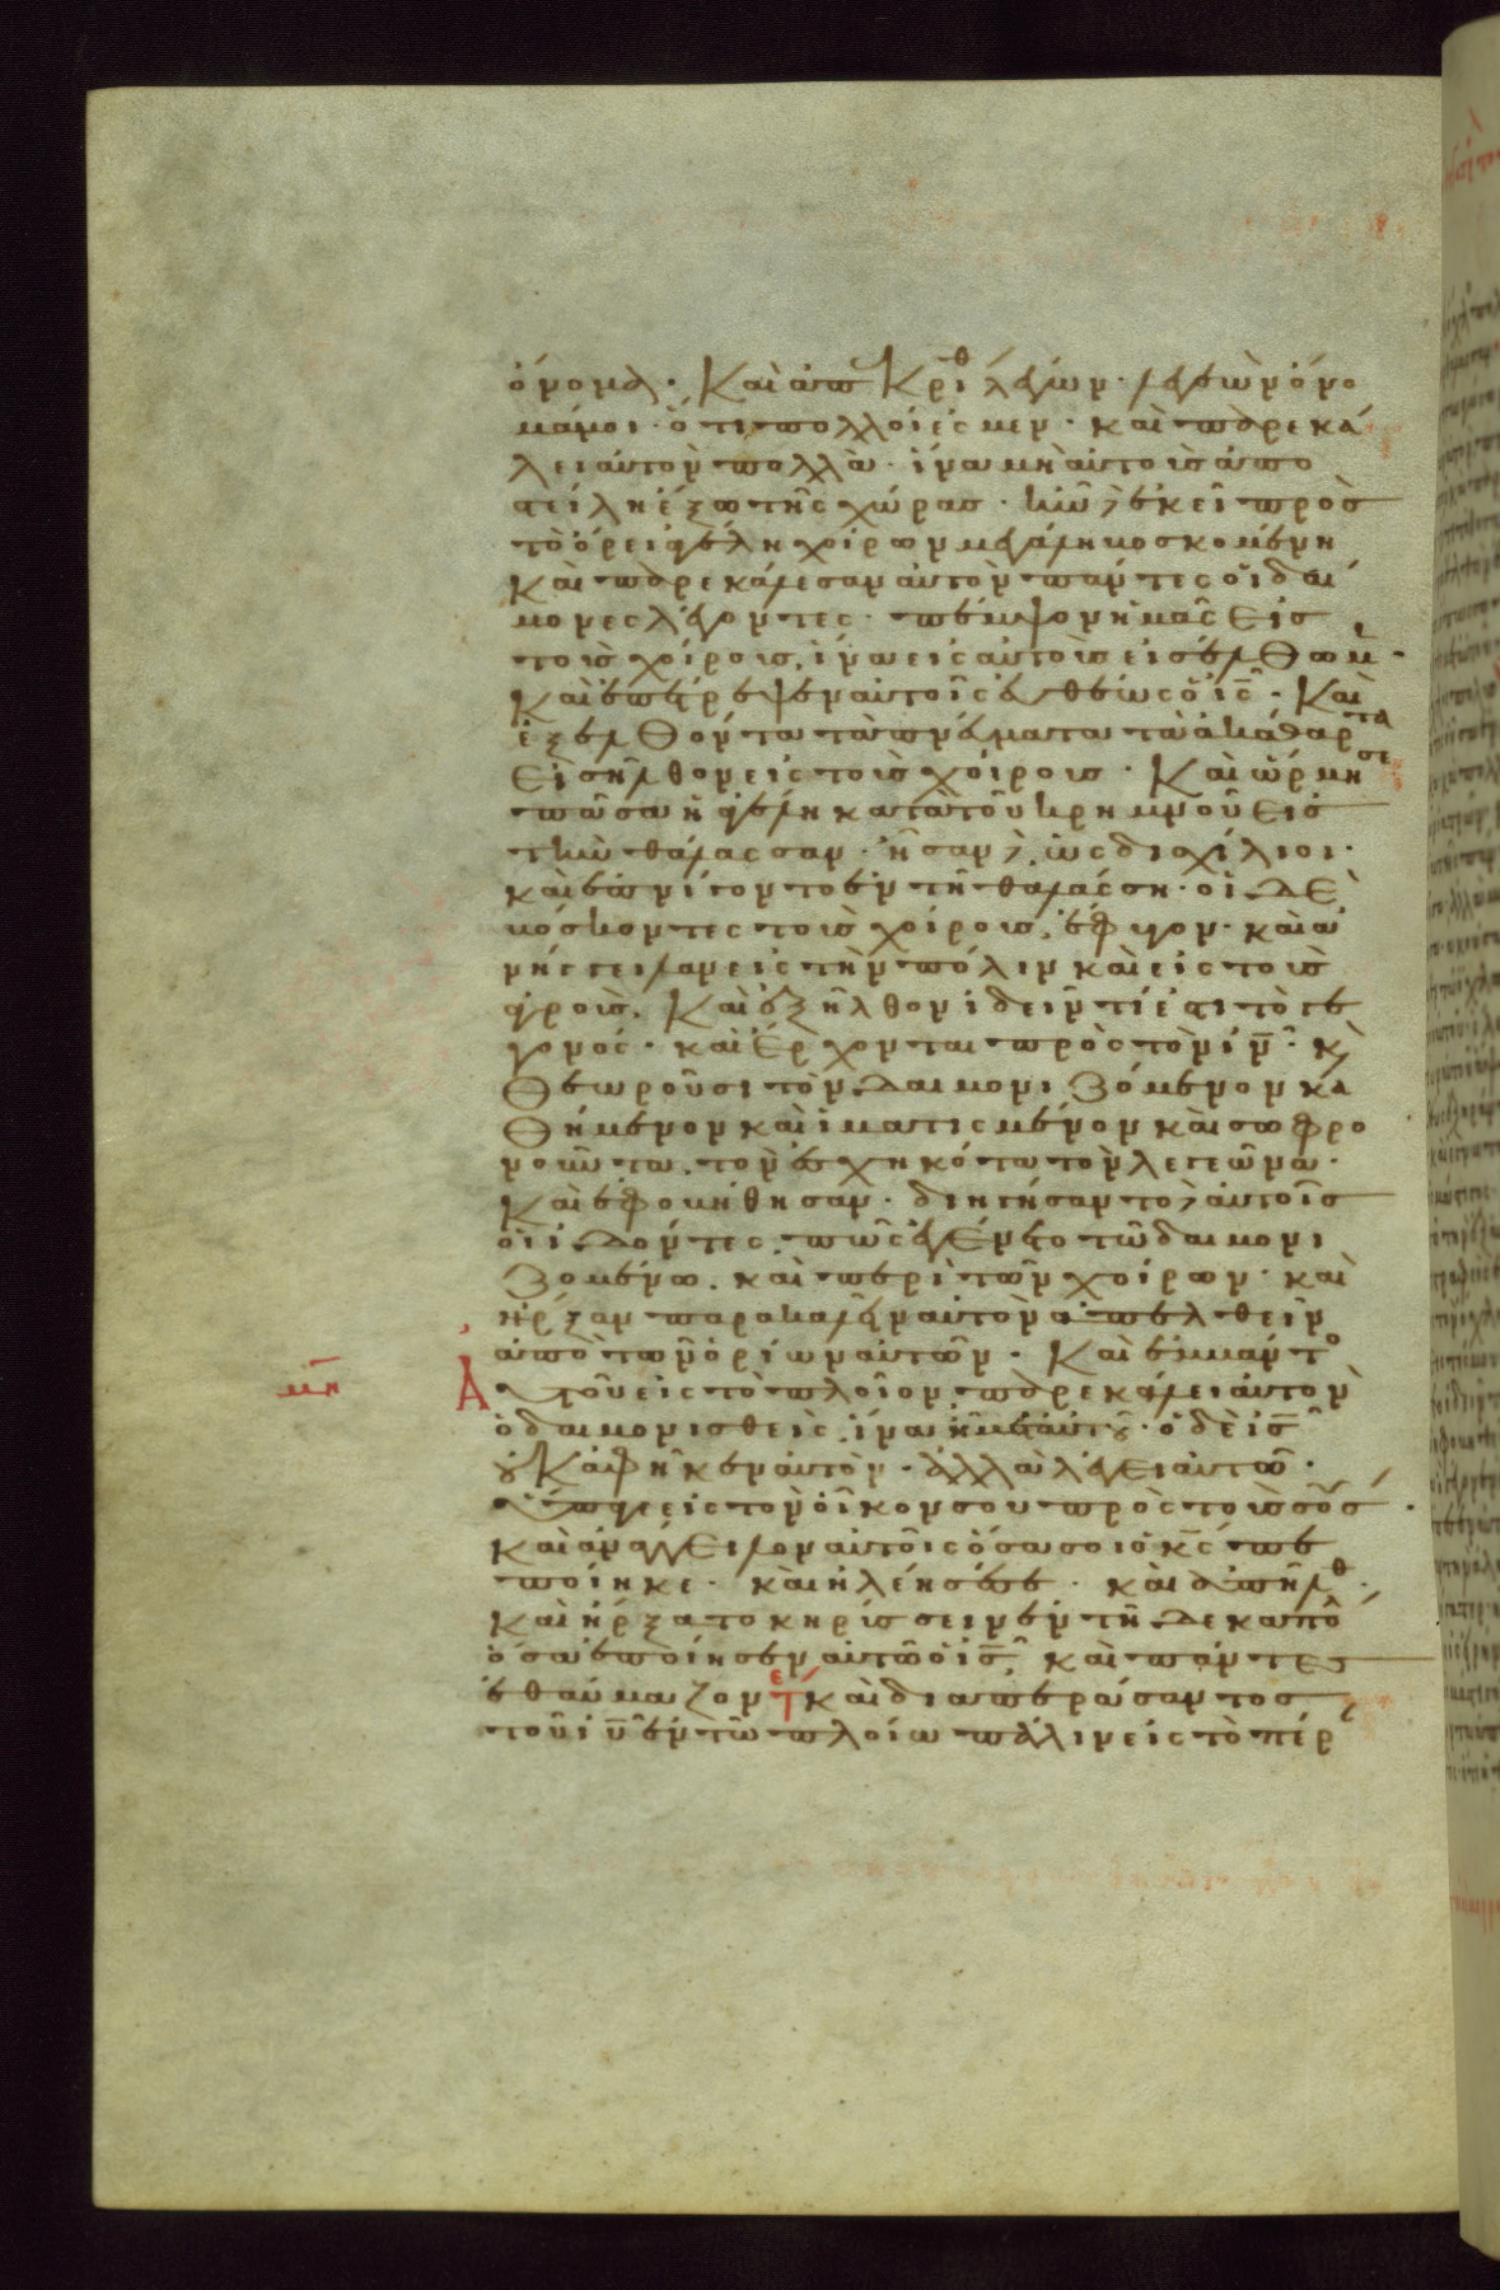 ὄνομα· Καὶ ἀπεκρίθ λέγων· λεγεὼν ὄνο
μά μοι· ὅτι πολλοί ἐσμεν· καὶ παρεκά
λει αὐτὸν πολλὰ· ἵνα μὴ αὐτοὺς ἀπο
στείλη ἔξω τῆς χώρας· ἦν δὲ ἐκεῖ πρὸς
τὸ ὄρει ἀγέλη χοίρων μεγάλη βοσκομένη
Καὶ παρεκάλεσαν αὐτὸν πάντες οἱ δαί
μονες λέγοντες· πέμψον ἡμᾶς εἰς
τοὺς χοίρους, ἵνα εἰς αὐτοὺς εἰσέλθωμ·
Καὶ ἐπέτρεψεν αὐτοῖς εὐθέως ὁ ις· Καὶ
ἐξελθόντα τὰ πνεύματα τὰ ἀκάθαρτα
εἰσῆλθον εἰς τοὺς χοίρους· Καὶ ὥρμησε
πᾶσα ἡ ἀγέλη κατὰ τοῦ κρημνοῦ εἰς
τὴν θάλασσαν· ἦσαν δὲ ὡς δισχίλιοι·
καὶ ἐπνίγοντο ἐν τῆ θαλάσση· οἱ δὲ
βόσκοντες τοὺς χοίρους, ἔφυγον· καὶ ἀ
νήγγειλαν εἰς τὴν πόλιν καὶ εἰς τοὺς
ἀγρούς. Καὶ ἐξῆλθον ἰδεῖν τί ἐστι τὸ γε
γονός· καὶ ἔρχονται πρὸς τὸν ιν· κὲ
θεωροῦσι τὸν δαιμονιζόμενον κα
θήμενον καὶ ἱματισμένον καὶ σωφρο
νοῦντα, τὸν ἐσχηκότα τὸν λεγεῶνα·
Καὶ ἐφοβήθησαν· διηγήσαντο δὲ αὐτοῖς
οἱ ἰδόντες, πῶς ἐγένετο τῶ δαιμονι
ζομένω, καὶ περὶ τῶν χοίρων· καὶ
ἤρξαν παρακαλεῖν αὐτὸν ἀπελθεῖν
ἀπὸ τῶν ὁρίων αὐτῶν· Καὶ ἐμβάντο
μη Αὐτοῦ εἰς τὸ πλοῖον, παρεκάλει αὐτὸν
ὁ δαιμονισθεὶς, ἵνα ἦ μετ' αὐτοῦ· ὁ δὲ ις
οὐκ ἀφῆκεν αὐτὸν· ἀλλὰ λέγει αὐτῶ·
ὕπαγε εἰς τὸν οἶκον σου πρὸς τοὺς σοὺς·
καὶ ἀνάγγειλον αὐτοῖς ὅσα σοι ὁ κς πε
ποίηκε· καὶ ἠλέησέ σε· καὶ ἀπῆλθ·
Καὶ ἤρξατο κηρύσσειν ἐν τῆ δεκαπό
ὅσα ἐποίησεν αὐτῶ ὁ ις, καὶ πάντες
ἐθαύμαζον τε καὶ διαπεράσαντος
τοῦ ιυ ἐν τῶ πλοίω πάλιν εἰς τὸ πέρ